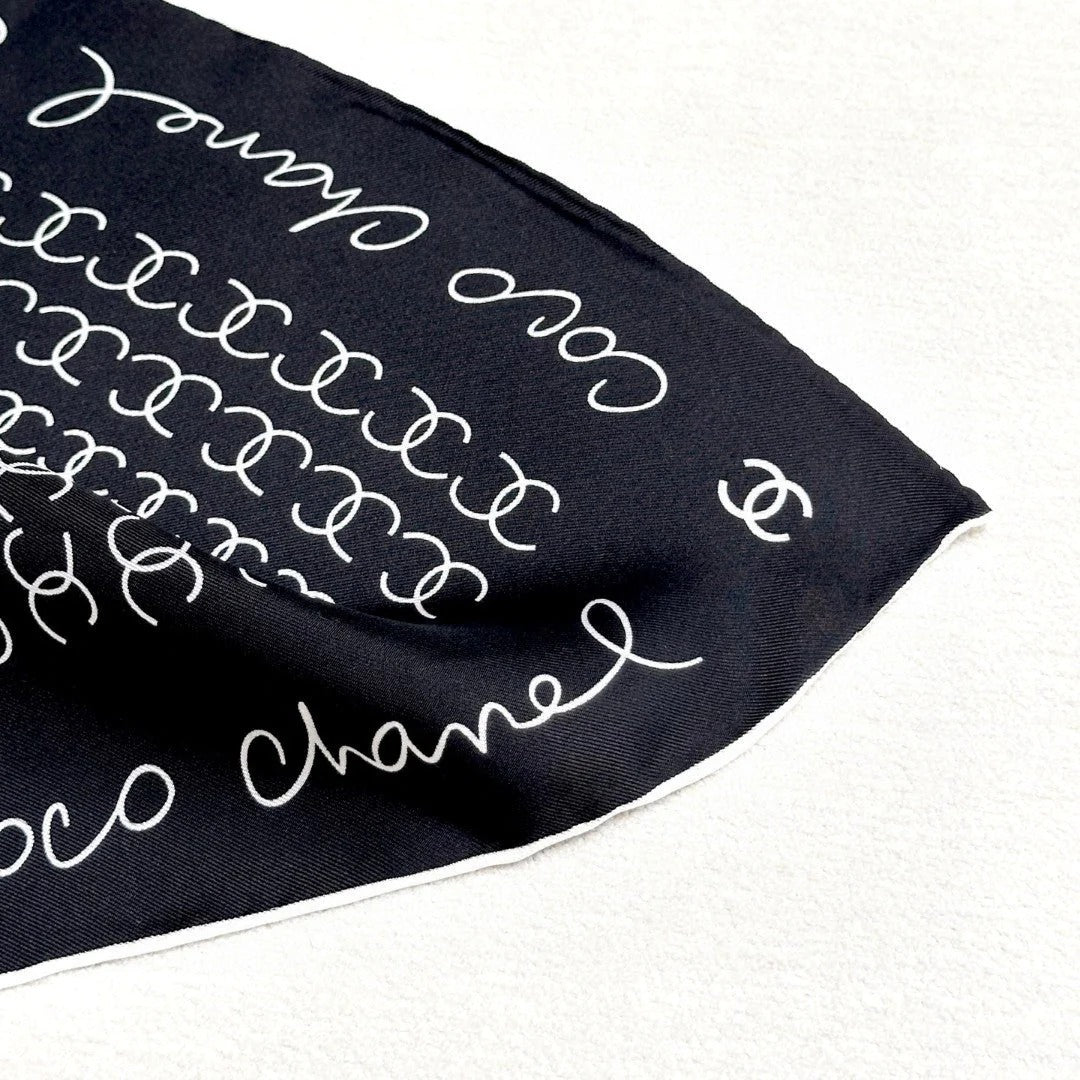 coco chanel
coco chanel